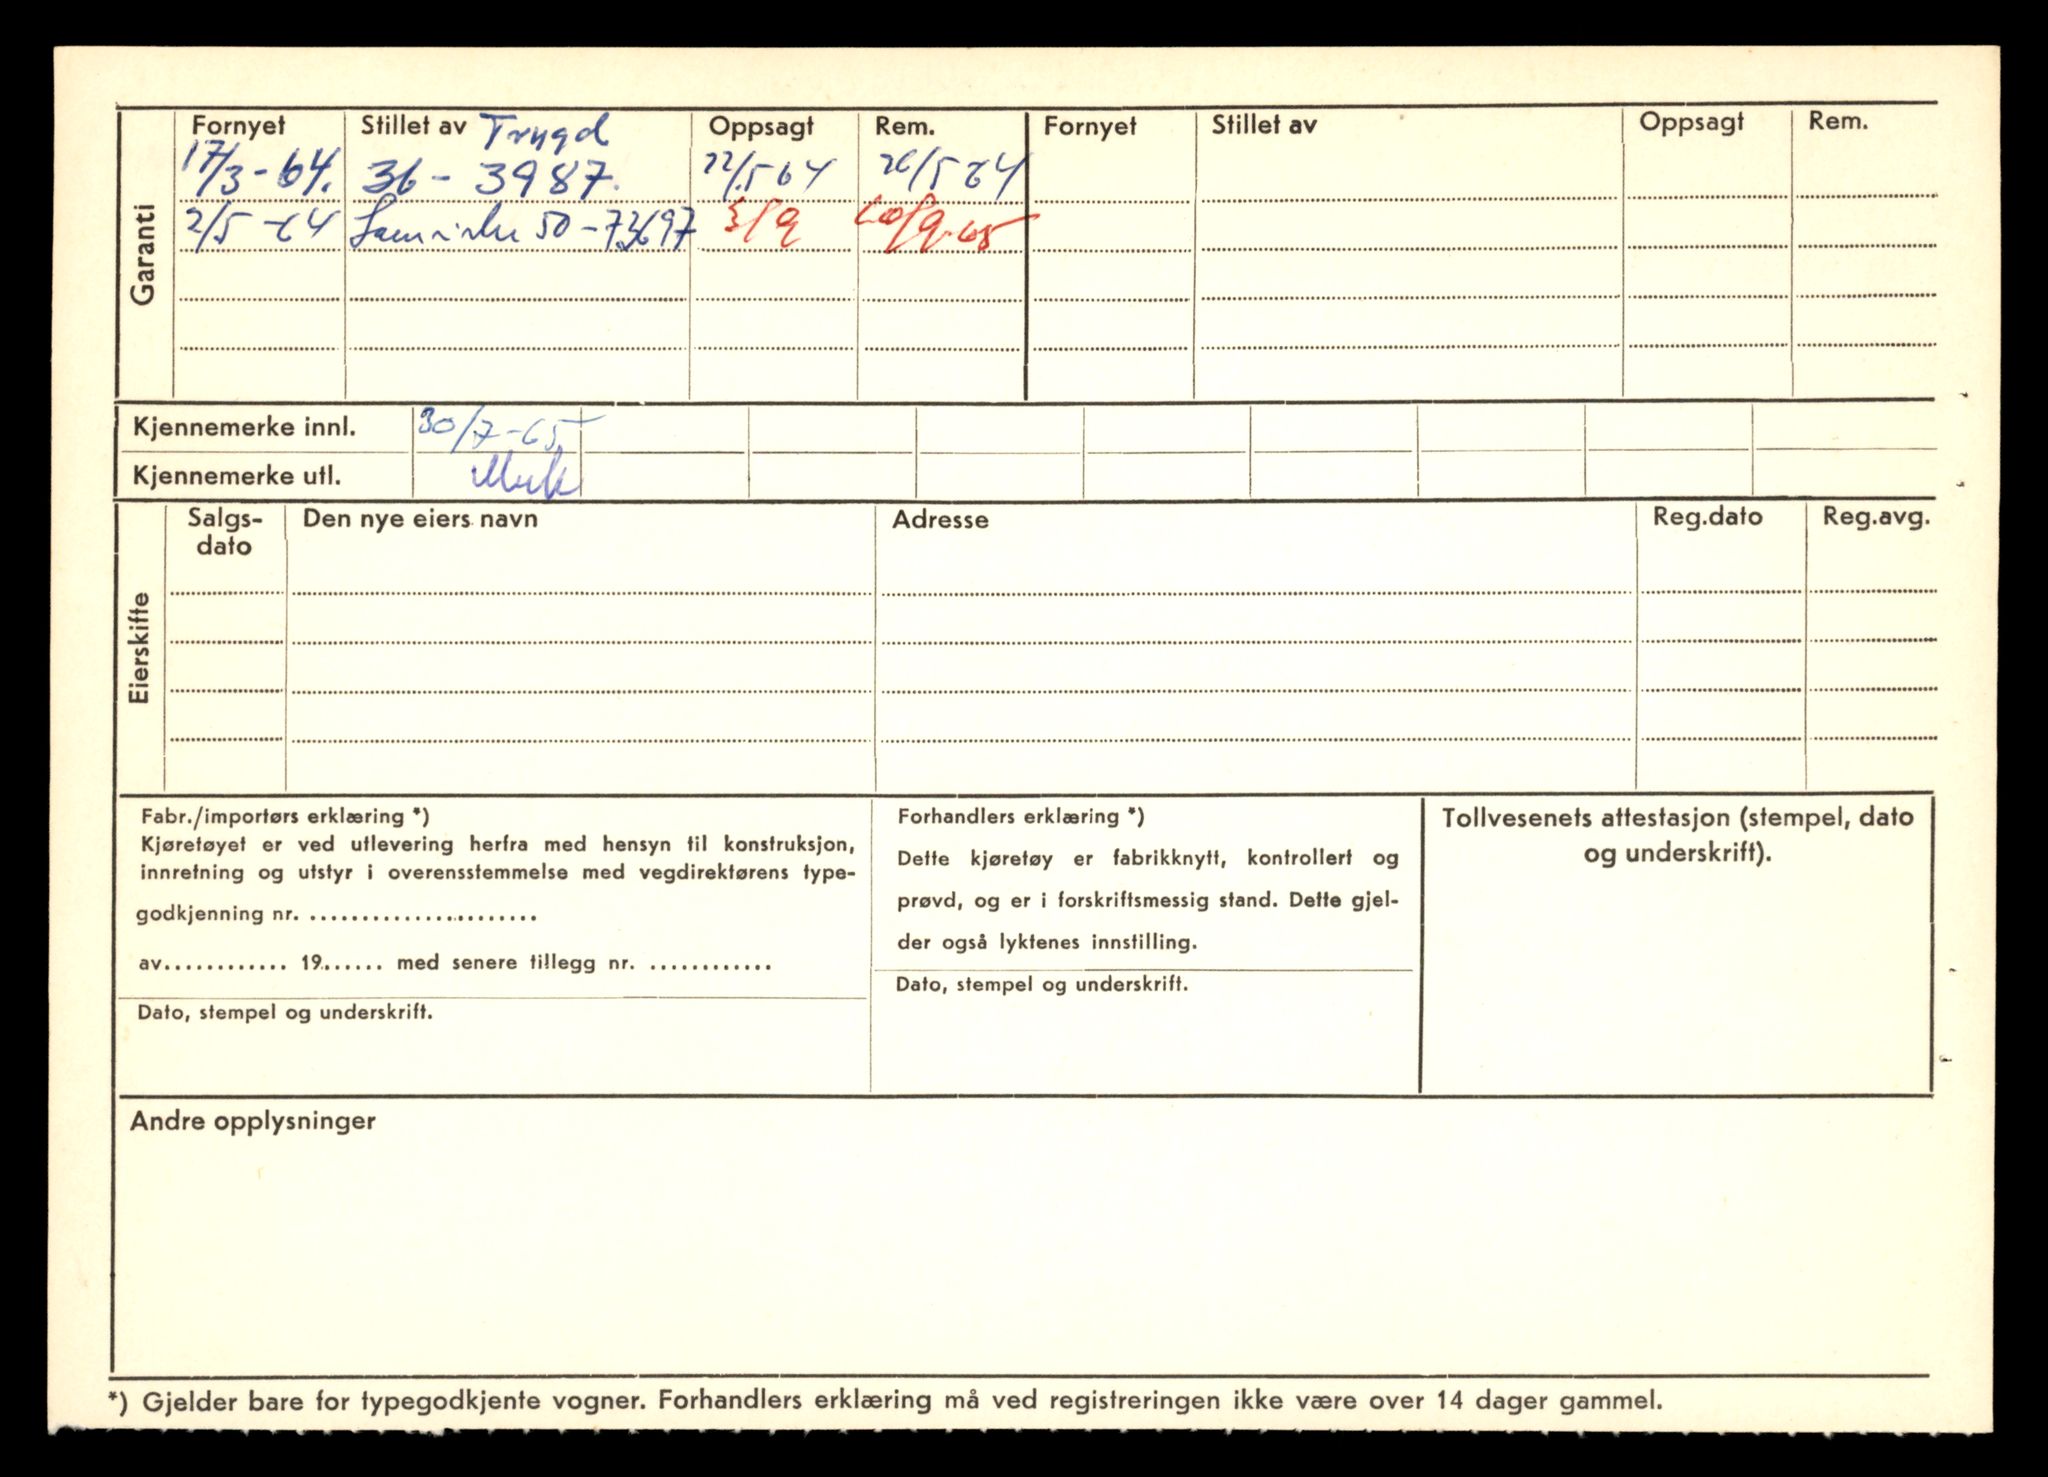 Garanti
Fornyet Stillet av Trygd Oppsagt Rem. Fornyet Stillet av Oppsagt Rem.
17/3-64. 36-3987. 22/5 64 26/5 64
2/5-64 Samvirke 50-73697 3/9 /9-65
Kjennemerke innl. 30/7-65
Kjennemerke utl.
Eierskifte
Salgs- Den nye eiers navn Adresse Reg.dato Reg.avg.
dato
Fabr./importørs erklæring *)
Kjøretøyet er ved utlevering herfra med hensyn til konstruksjon,
innretning og utstyr i overensstemmelse med vegdirektørens type-
godkjenning nr. ......................
av............ 19...... med senere tillegg nr. ............
Dato, stempel og underskrift.
Forhandlers erklæring *)
Dette kjøretøy er fabrikknytt, kontrollert og
prøvd, og er i forskriftsmessig stand. Dette gjel-
der også lyktenes innstilling.
Dato, stempel og underskrift.
Tollvesenets attestasjon (stempel, dato
og underskrift).
Andre opplysninger
*) Gjelder bare for typegodkjente vogner. Forhandlers erklæring må ved registreringen ikke være over 14 dager gammel.